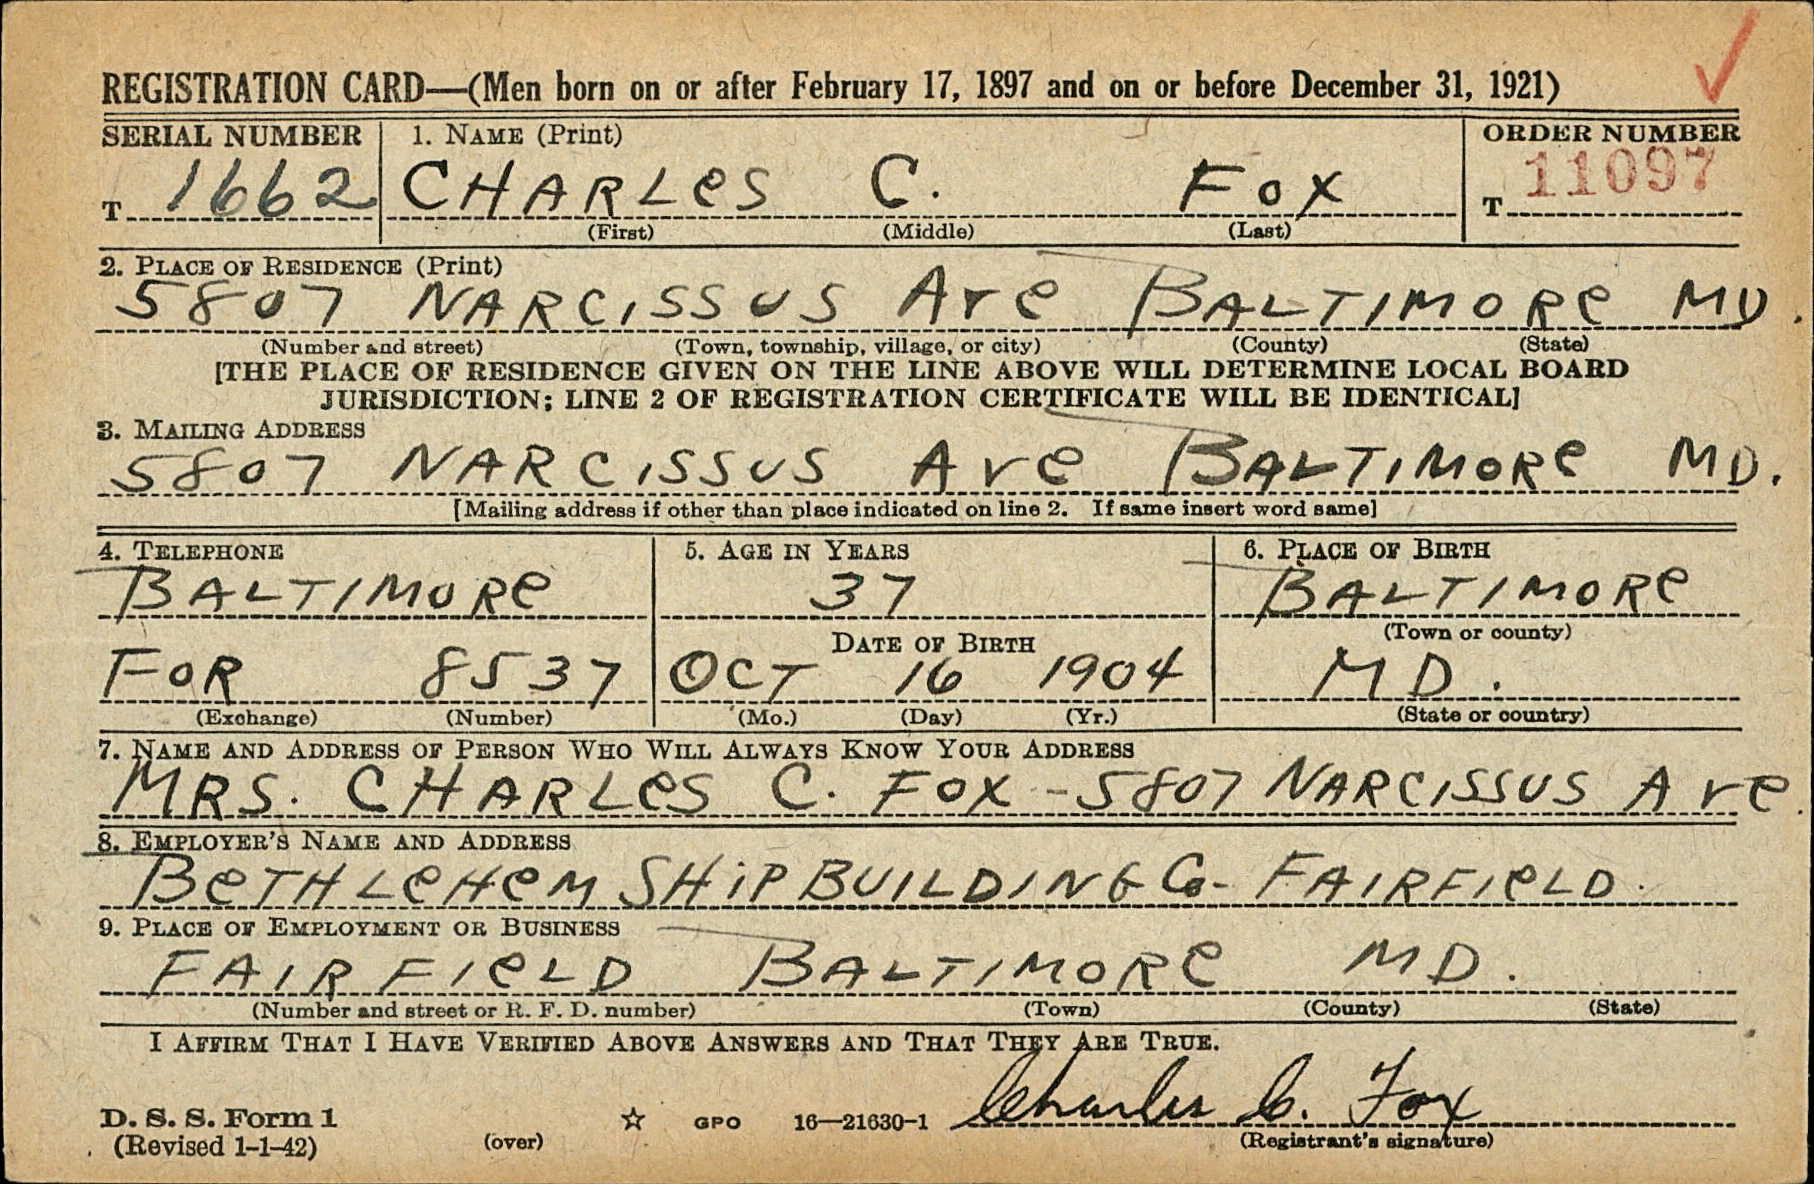 REGISTRATION CARD—(Men born on or after February 17, 1897 and on or before December 31, 1921)
SERIAL NUMBER 1. NAME (Print) ORDER NUMBER
T 1662 CHARLES C. FOX T 11097
(First) (Middle) (Last)
2. PLACE OF RESIDENCE (Print)
5807 NARCISSUS Ave BALTIMORE MD.
(Number and street) (Town, township, village, or city) (County) (State)
[THE PLACE OF RESIDENCE GIVEN ON THE LINE ABOVE WILL DETERMINE LOCAL BOARD
JURISDICTION; LINE 2 OF REGISTRATION CERTIFICATE WILL BE IDENTICAL]
3. MAILING ADDRESS
5807 NARCISSUS Ave BALTIMORE MD.
[Mailing address if other than place indicated on line 2. If same insert word same]
4. TELEPHONE 5. AGE IN YEARS 6. PLACE OF BIRTH
BALTIMORE 37 BALTIMORE
DATE OF BIRTH (Town or county)
FOR 8537 OCT 16 1904 MD.
(Exchange) (Number) (Mo.) (Day) (Yr.) (State or country)
7. NAME AND ADDRESS OF PERSON WHO WILL ALWAYS KNOW YOUR ADDRESS
MRS. CHARLES C. FOX - 5807 NARCISSUS Ave.
8. EMPLOYER'S NAME AND ADDRESS
BETHLEHEM SHIPBUILDING Co- FAIRFIELD.
9. PLACE OF EMPLOYMENT OR BUSINESS
FAIRFIELD BALTIMORE MD.
(Number and street or R. F. D. number) (Town) (County) (State)
I AFFIRM THAT I HAVE VERIFIED ABOVE ANSWERS AND THAT THEY ARE TRUE.
D. S. S. Form 1 ☆ GPO 16—21630-1 Charles C. Fox
(Revised 1-1-42) (over) (Registrant's signature)